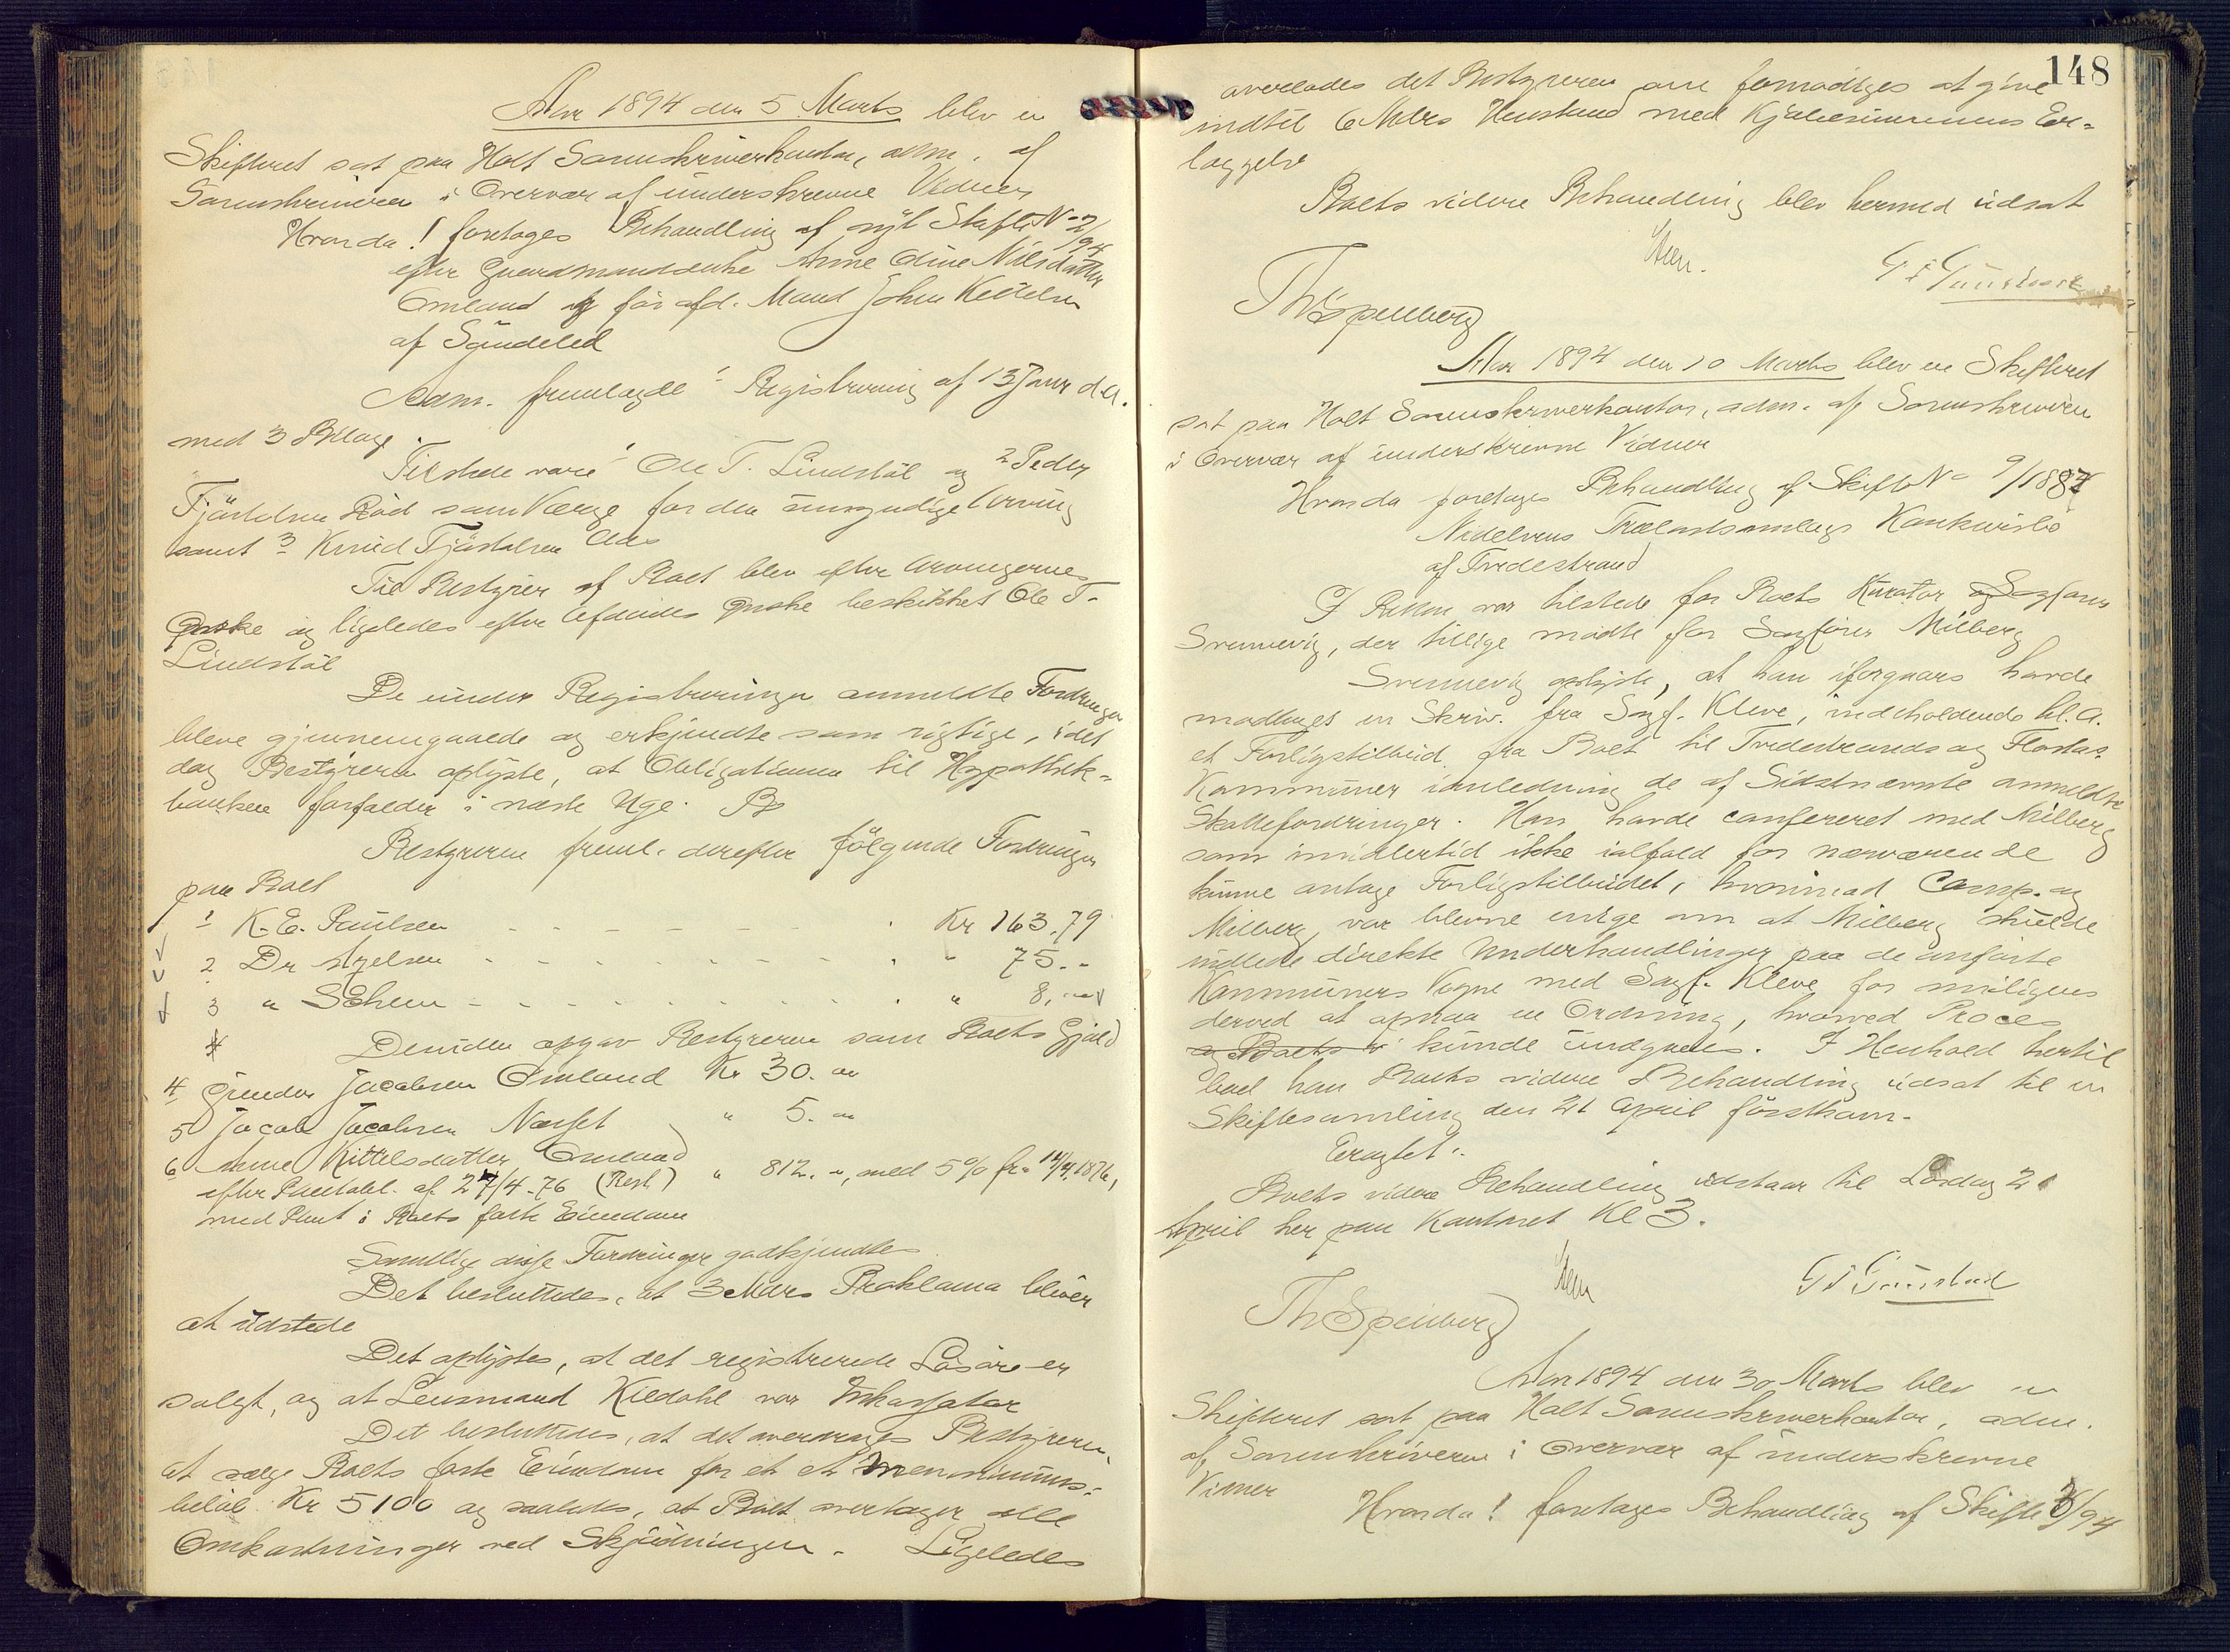 Aar 1894 den 5 Marts blev en
Skifteret sat paa Holt Sorenskriverkontor, adm. af
Sorenskriveren i Overvær af underskrevne Vidner
Hvorda ! foretoges Behandling af nyt Skifte No 2/94
efter Gaardmandsenke Anne Oline Nilsdatter
Omland og før afd. Mand John Kittelsen
af Søndeled
Adm. fremlagde ! Registrering af 13 Janr d. A.
med 3 Bilage.
Tilstede vare 1 Ole T. Lindstøl og 2 Peder
Fjørtelsen Rød som Værge for den umyndige Arving
samt 3 Knud Fjørtelsen
Til Bestyrer af Boet blev efter Arvingernes
Ønske og ligeledes efter Afdødes Ønske beskikket Ole T.
Lindstøl
De under Registreringen anmeldte Fordringer
bleve gjennemgaaede og erkjendte som rigtige, idet
dog Bestyreren oplyste, at Obligationen til Hypothek-
banken forfalder i næste Uge.
Bestyreren freml. derefter følgende Fordringer
paa Boet
1 K. E. Paulsen Kr 163.79
2 Dr Axelsen " 75.-
3 " Schem " 8.
Desuden opgav Bestyreren som Boets Gjæld
4 Gunder Jacobsen Omland Kr 30. "
5 Jacob Jacobsen Næsset " 5. "
6 Anne Kittelsdatter Omland
efter Pantobl. af 27/4-76 (Rest) " 812. ", med 5% fra 14/4 1876,
med Pant i Boets faste Eiendom
Samtlige disse Fordringer godkjendtes
Det besluttedes, at 3 Mdrs Proklama bliver
at udstede
Det oplystes, at det registrerede Løsøre er
solgt, og at Lensmand Kildahl var Inkassator
Det besluttedes, at det overdrages Bestyreren
at sælge Boets faste Eiendom for et et Menimums-
beløb Kr 5100 og saaledes, at Boet overtager alle
Omkostninger ved Skjødningen. Ligeledes
148
overlodes det Bestyreren om fornødiges at give
indtil 6 Mdrs Henstand med Kjøbesummens Er-
læggelse
Boets videre Behandling blev hermed udsat
Th Spenberg
Aar 1894 den 10 Marts blev en Skifteret
sat paa Holt Sorenskriverkontor, adm. af Sorenskriveren
i Overvær af underskrevne Vidner
Hvorda foretoges Behandling af Skifte No 9/1887
Nidelvens Trælastsamlags Konkursbo
af Tvedestrand
I Retten var tilstede for Boets Kurator Sagfører
Svennevig, der tillige mødte for Sagfører Milberg
Svennevig oplyste, at han iforgaars havde
modtaget en Skriv. fra Sagf. Kleve, indeholdende bl. A.
et Forligstilbud fra Boet til Tvedestrands og Flostas
Kommuner ianledning de af Sidstnævnte anmeldte
Skattefordringer. Han havde confereret med Milberg
som imidlertid ikke ialfald for nærværende
kunne antage Forligstilbudet, hvorimod Comp. og
Milberg var blevne enige om at Milberg skulde
indlede direkte Underhandlinger paa de anførte
Kommuners Vegne med Sagf. Kleve for muligens
derved at opnaa en Ordning, hvorved Proces
og Boets v kunde undgaaes. I Henhold hertil
bad han Boets videre Behandling udsat til en
Skiftesamling den 21 April førstkom.
Eragtet:
Boets videre Behandling udstaar til Lørdag 21
April her paa Kontoret Kl 3.
Th Spenberg
Aar 1894 den 30 Marts blev en
Skifteret sat paa Holt Sorenskriverkontor, adm.
af Sorenskriveren i Overvær af underskrevne
Vidner
Hvorda ! foretoges Behandling af Skifte 3/94